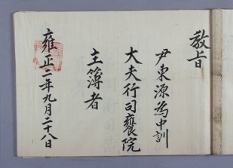 教旨
尹東源為中訓
大夫行司饔院
主簿者
雍正二年九月二十八日